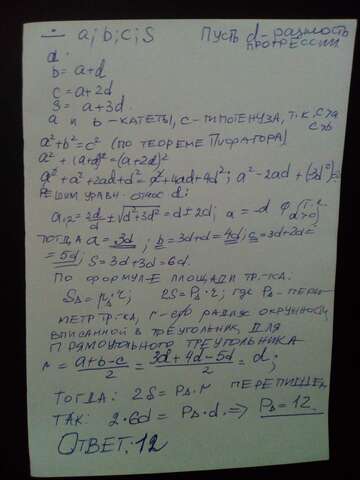 ÷ a; b; c; S Пусть d - разность
прогрессии
d.
b = a+d
c = a+2d
S = a+3d.
a и b - катеты, c - гипотенуза, т.к. c>a
c>b
a²+b²=c² (по теореме Пифагора)
a²+(a+d)²=(a+2d)²
a²+a²+2ad+d²=a²+4ad+4d²; a²-2ad+(-3d²)=0
Решим уравн. относ
a₁,₂ = 2d/2 ± √d²+3d² = d ± 2d; a = -d ∅ (т.к. a>0)
Тогда a = 3d; b = 3d+d = 4d; c = 3d+2d =
= 5d; S = 3d+3d = 6d.
По формуле площади тр-ка.
2S = P△·r; где P△ - пери-
метр тр-ка, r - его радиус окружности
вписанной в треугольник. Для
прямоугольного треугольника
r = (a+b-c)/2 = (3d+4d-5d)/2 = d;
Тогда: 2S = P△·r перепишем
так: 2·6d = P△·d. => P△ = 12.
Ответ: 12